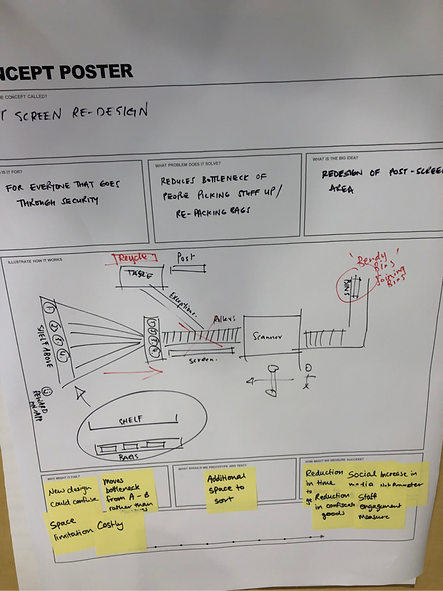 NCEPT POSTER
CONCEPT CALLED?
T SCREEN RE-DESIGN
IS IT FOR?
FOR EVERYONE THAT GOES
THROUGH SECURITY
WHAT PROBLEM DOES IT SOLVE?
REDUCES BOTTLENECK OF
PEOPLE PICKING STUFF UP/
RE-PACKING BAGS
WHAT IS THE BIG IDEA?
REDESIGN OF POST-SCREE
AREA
ILLUSTRATE HOW IT WORKS
Recycle
TABLE
Post
Exceptions
Rollers
Screen.
Scanner
BINS
'Bendy'
Bins
Joining
Bins
SHELF ABOVE
REWARD
SHELF
BAGS
WHY MIGHT IT FAIL?
New design
could confuse
Moves
bottleneck
from A-B
rather than
Space
limitation
Costly
WHAT SHOULD WE PROTOTYPE AND TEST?
Additional
space to
sort
HOW MIGHT WE MEASURE SUCCESS?
Reduction
in time
to
Reduction
in confiscated
goods
Social
media
Increase in
Staff
engagement
Measure